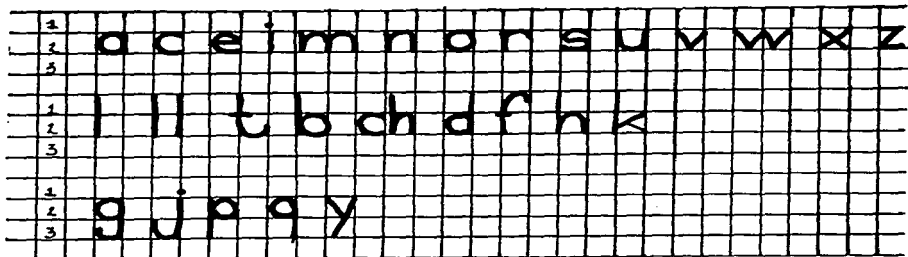 1
2 a c e i m n o r s u v w x z
3
1
2 l ll t b ch d f h k
3
1
2 g j p q y
3